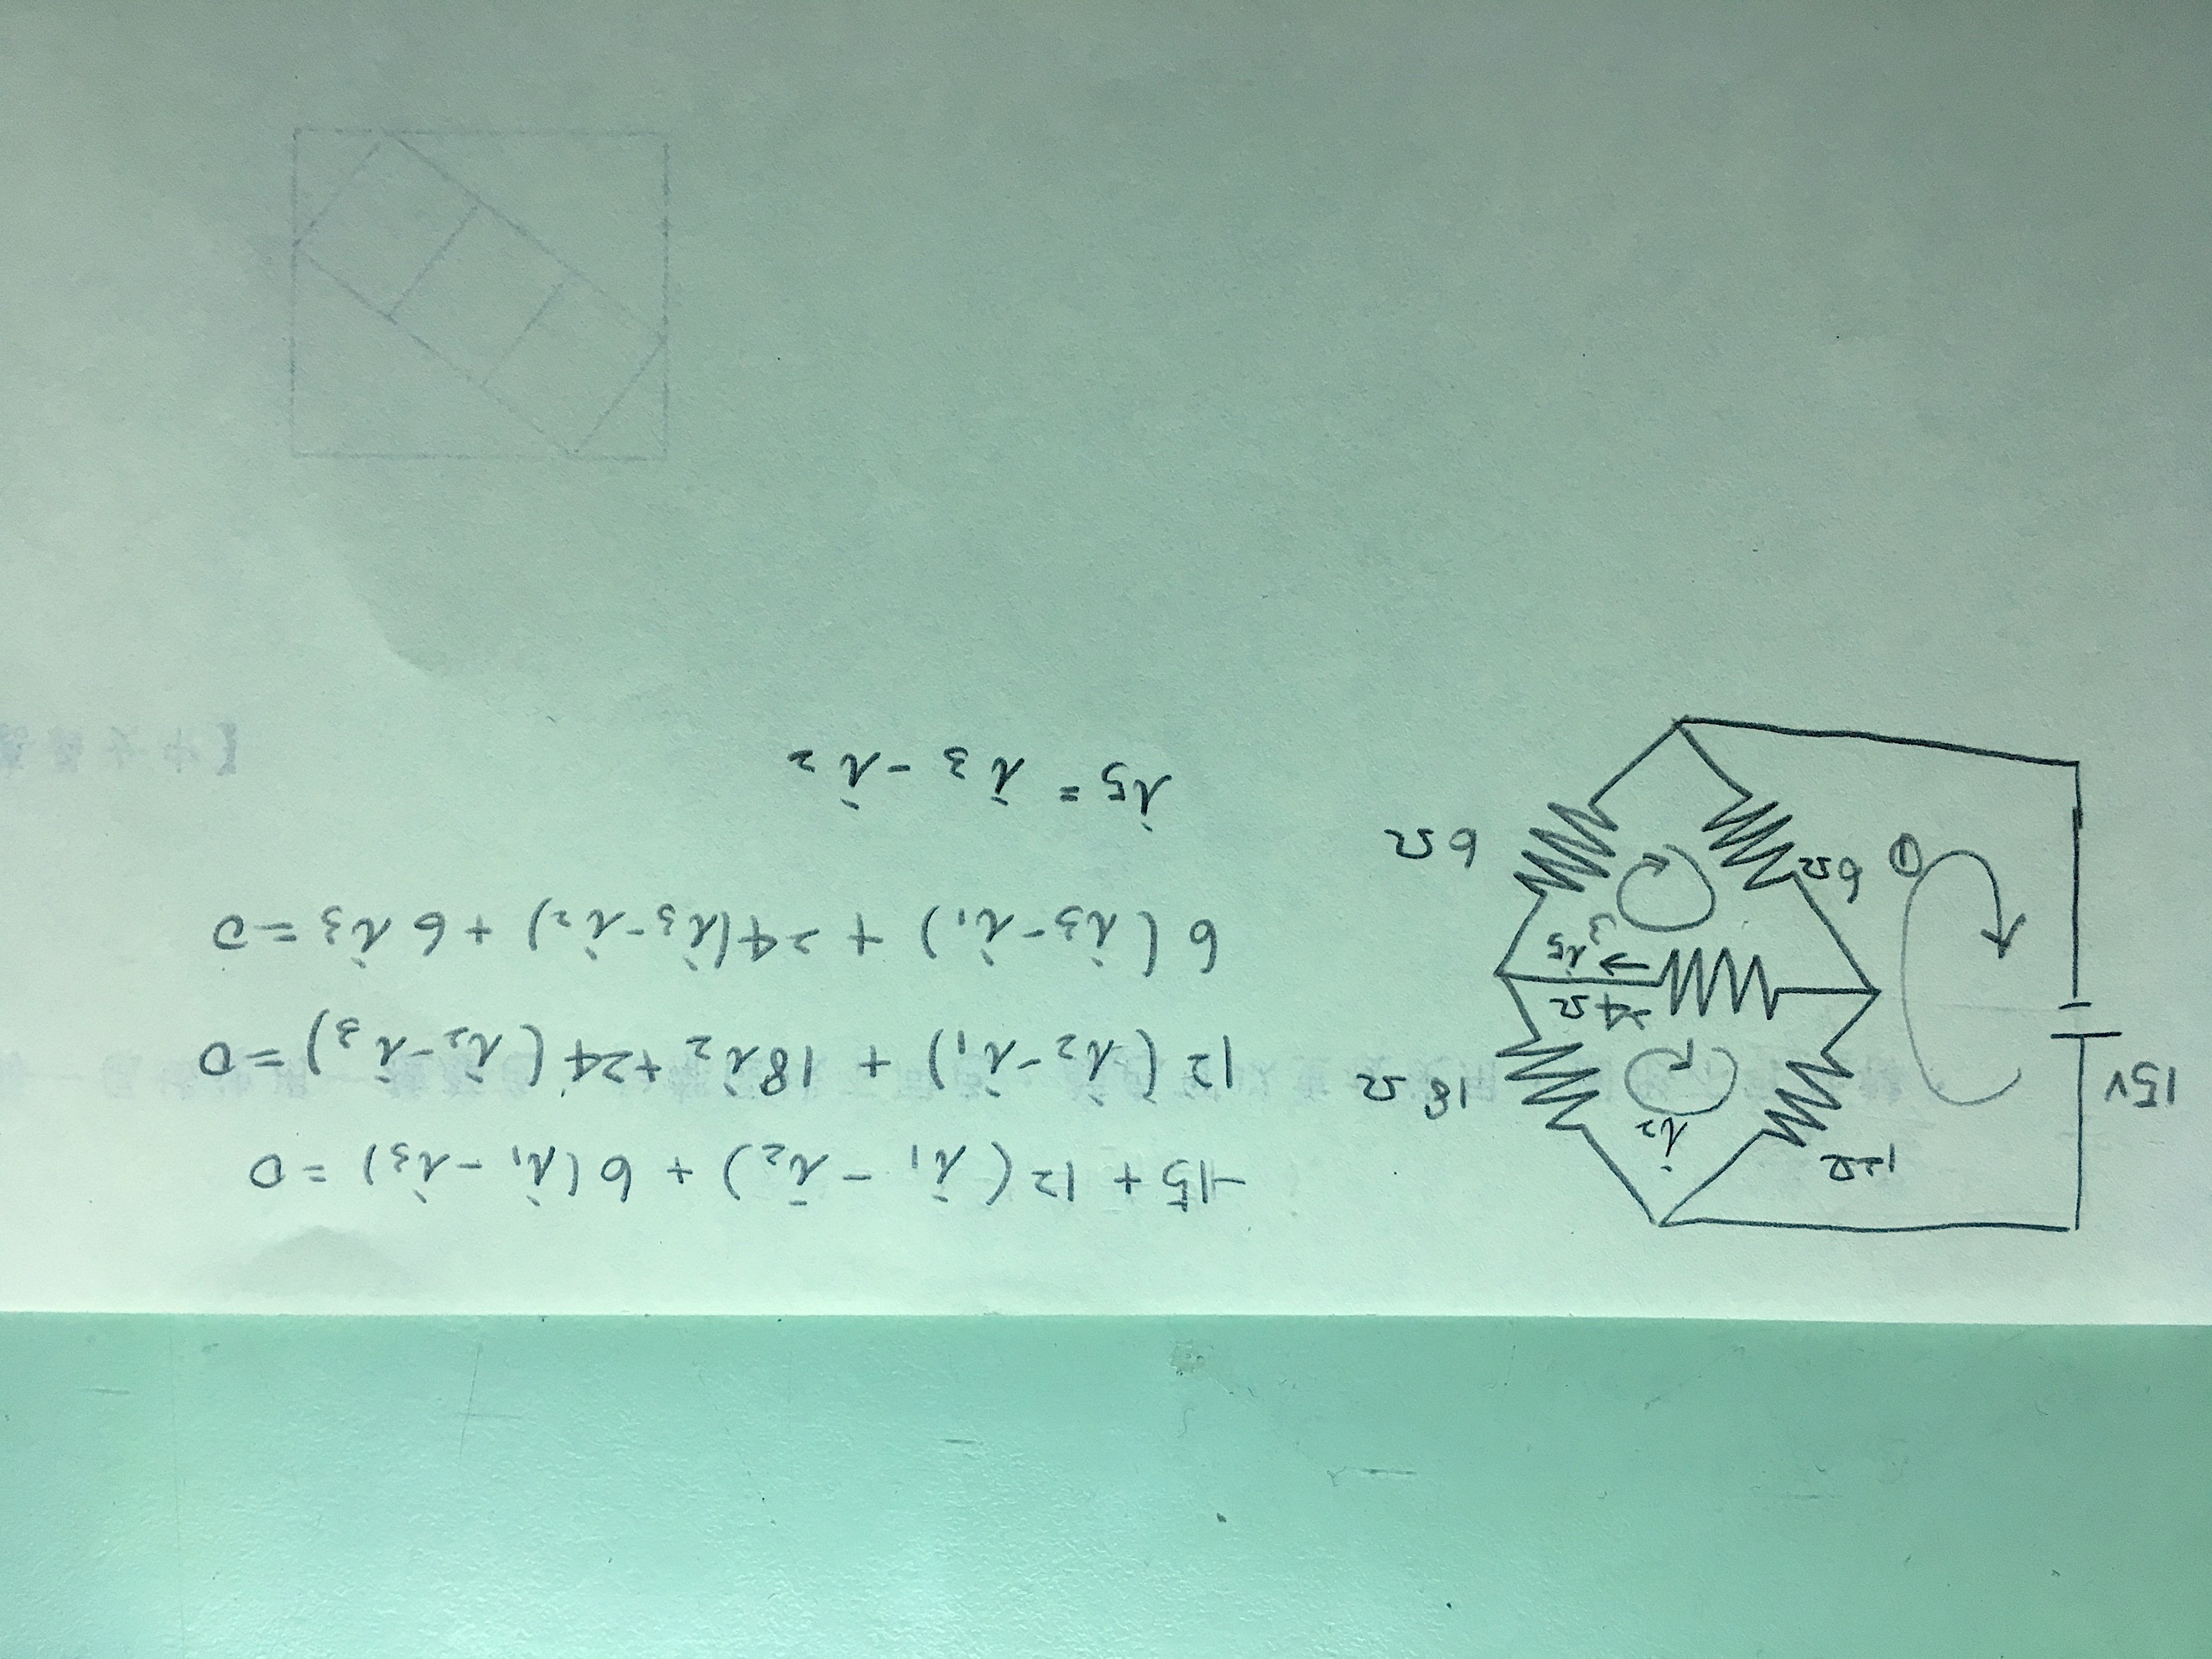 15V
12Ω
i2
18Ω
24Ω
i5
3
①
6Ω
6Ω
-15 + 12 (i1 - i2) + 6 (i1 - i3) = 0
12 (i2 - i1) + 18 i2 + 24 (i2 - i3) = 0
6 (i3 - i1) + 24 (i3 - i2) + 6 i3 = 0
i5 = i3 - i2